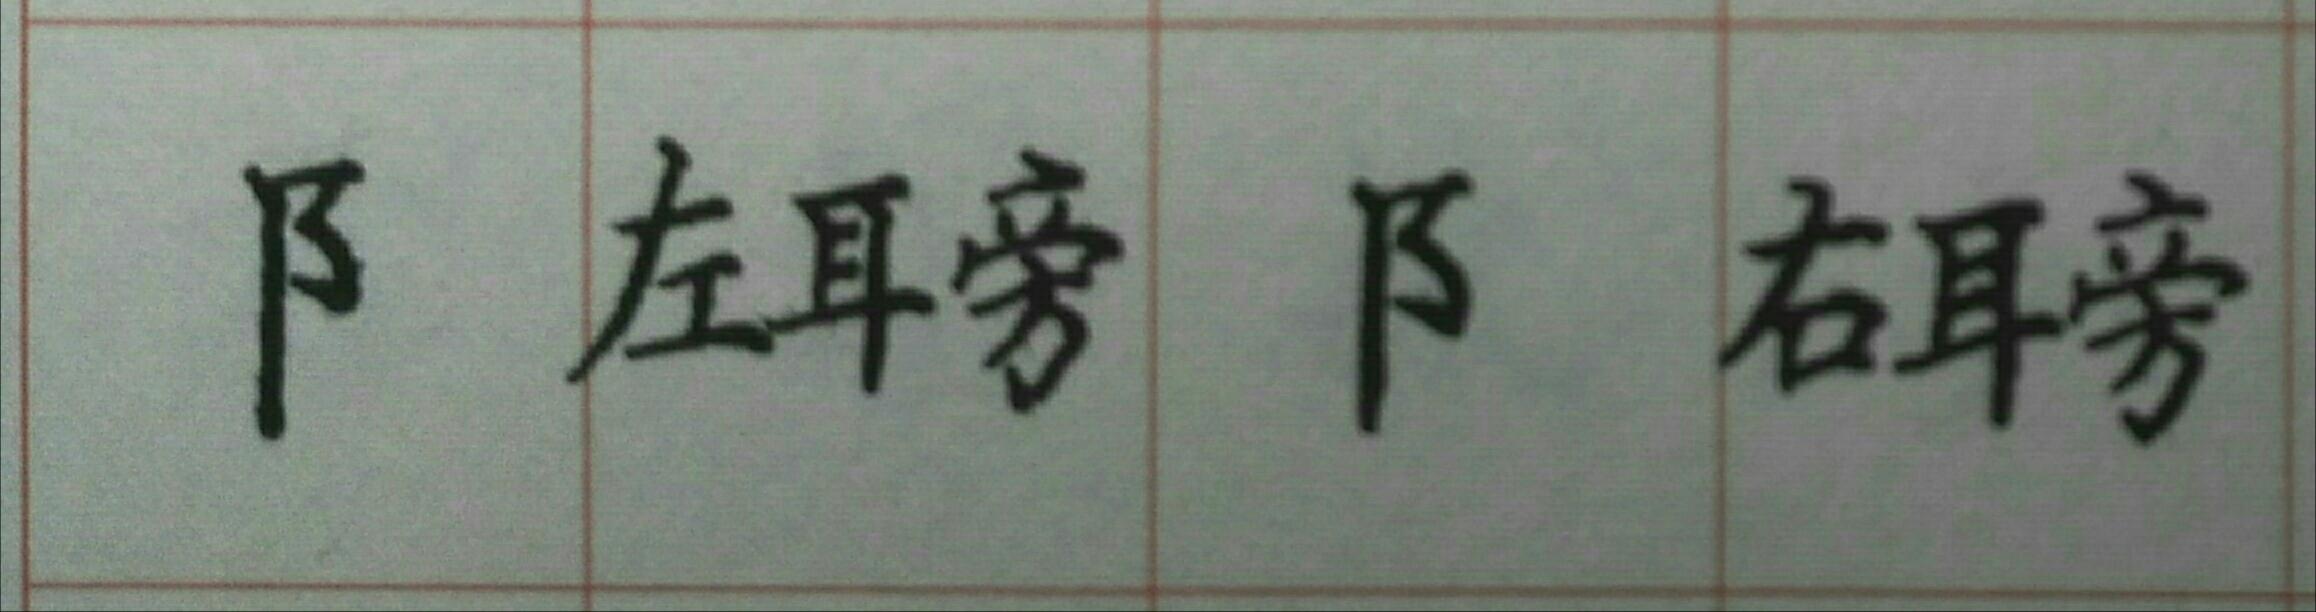 阝 左耳旁 阝 右耳旁